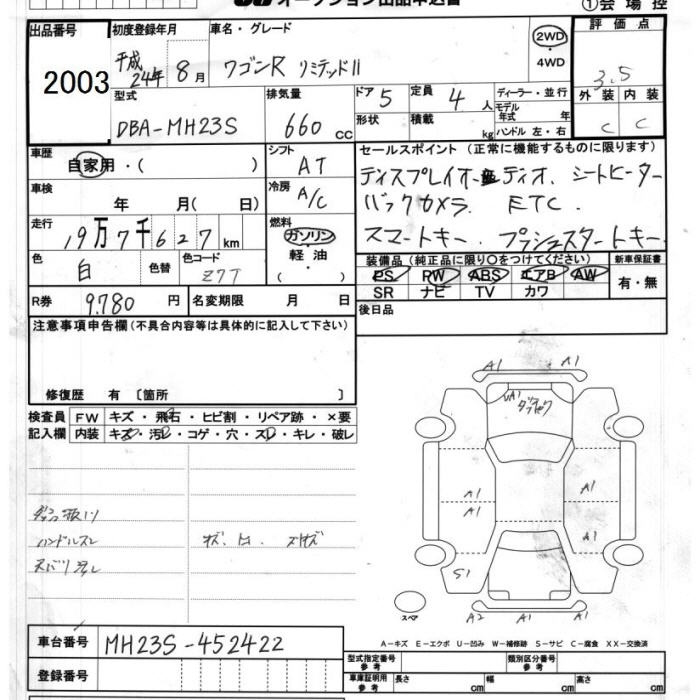 オークション出品申込書
①会場控
出品番号
2003
初度登録年月
平成
24年 8月
車名・グレード
ワゴンR リミテッドII
2WD
・
4WD
評価点
3.5
外装 内装
C C
型式
DBA-MH23S
排気量
660 cc
ドア 5
形状
定員 4 人
積載 kg
ディーラー・並行
モデル
年式 年
ハンドル 左・右
車歴
自家用・( )
シフト
AT
車検
年 月( 日)
冷房
A/C
走行
19万7千627km
燃料
ガソリン
・
軽油
・
( )
色
白
色替
色コード
Z7T
R券 9.780 円
名変期限 月 日
セールスポイント (正常に機能するものに限ります)
ディスプレイオーディオ、シートヒーター
バックカメラ ETC、
スマートキー、プッシュスタートキー、
装備品(純正品に限り○をつけてください)
PS RW ABS エアB AW
SR ナビ TV カワ
新車保証書
有・無
注意事項申告欄(不具合内容等は具体的に記入して下さい)
修復歴 有 〔箇所 〕
後日品
検査員
記入欄
FW キズ・飛石・ヒビ割・リペア跡・×要
内装 キズ・汚レ・コゲ・穴・スレ・キレ・破レ
ハンドルスレ
A1 A1
UA1
A1 A1
A1 A1
S1
A2 A1 A1
スペア
A-キズ E-エクボ U-凹み W-補修跡 S-サビ C-腐食 XX-交換済
車台番号 MH23S-452422
登録番号
型式指定番号
参考
類別区分番号
参考
車庫証明用
参考
長さ cm 幅 cm 高さ cm